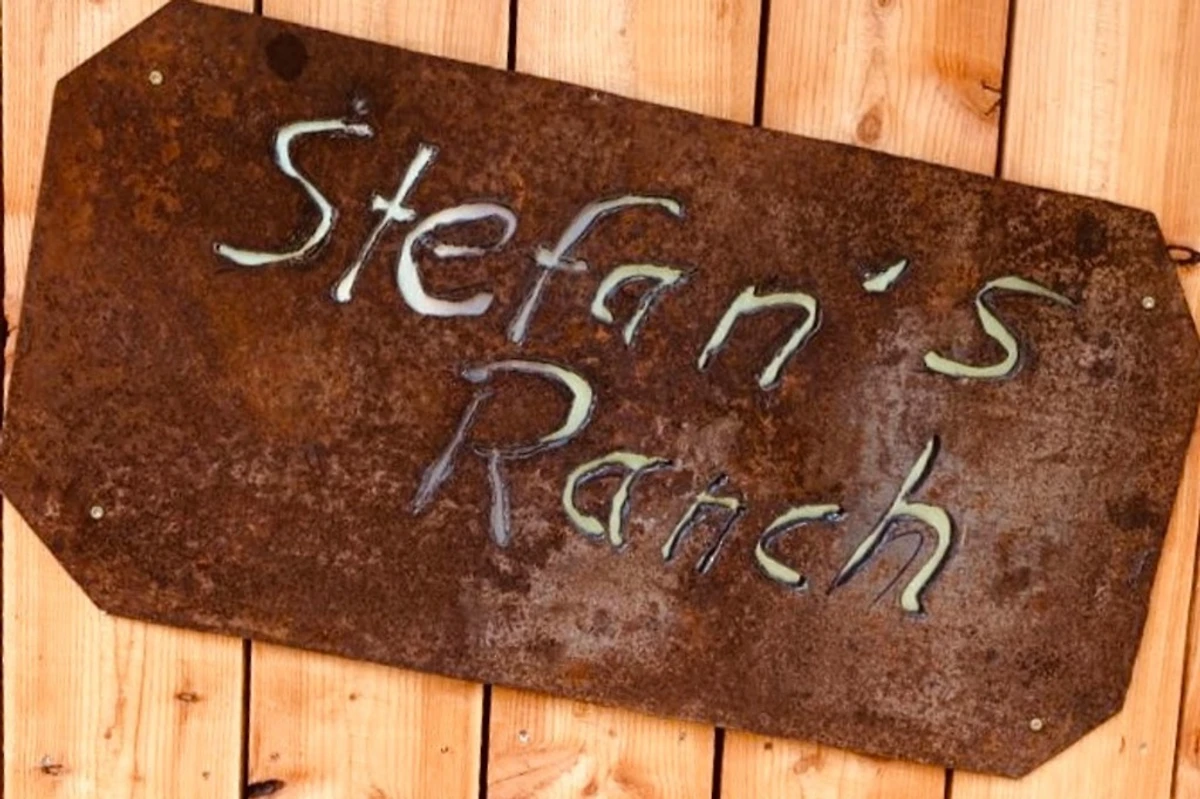 Stefan's
Ranch